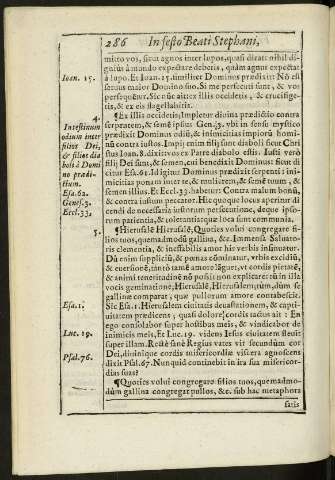 286 In festo Beati Stephani,
mitto vos, sicut agnos inter lupos, quasi dicat: nihil di-
gnius à mundo expectare debetis, quàm agnus expectat
Ioan. 15.
à lupo. Et Ioan. 15. similiter Dominus prædixit: Nō est
servus maior Domino suo. Si me persecuti sunt, & vos
persequentur. Sic & alter illis occidetis, & crucifige-
tis, & ex eis flagellabitis.
4.
Intestinum odium inter filios Dei, & filios diaboli à Domino prædictum.
Esa. 62.
Genes. 3.
Eccl. 33.
¶Et illis occidetis, Impletur divina prædictio contra
serpentem, & semē ipsius Gen. 3. ubi in sensu mystico
prædixit Dominus odiū, & inimicitias impiorū homi-
nū contra iustos. Impij enim filij sunt diaboli sicut Chri-
stus Ioan. 8. dixit: vos ex Patre diabolo estis. Iusti verò
filij Dei sunt, & semen, cui benedixit Dominus: sicut di-
citur Esa. 61. Id igitur Dominus prædixit serpenti: ini-
micitias ponam inter te, & mulierem, & semē tuum, &
semen illius. Et Eccl. 33. habetur: Contra malum bonū,
& contra iustum peccator. Hic quoque locus aperitur di-
cendi de necessaria iustorum persecutione, deque ipso-
rum patientia, & tolerantia: quæ loca sunt communia.
5.
¶Hierusalē, Hierusalē, Quoties volui congregare fi-
lios tuos, quemadmodū gallina, &c. Immensā Salvato-
ris clementia, & ineffabilis amor his verbis insinuatur.
Dū enim suppliciū, & pœnas cōminatur, urbis excidiū,
& eversionē, tantò tamē amore lāguet, ut cordis pietatē,
& animi teneritudinē nō possit non explicare: tùm in illa
vocis geminatione, Hierusalem, Hierusalem, tùm, dùm se
gallinæ comparat, quæ pullorum amore contabescit.
Esa. 1.
Sic Esa. 1. Hierusalem civitatis devastationem, & capti-
vitatem prædicens, quasi dolore cordis tactus ait: En
ego consolabor super hostibus meis, & vindicabor de
Luc. 19.
inimicis meis, Et Luc. 19. videns Iesus civitatem flevit
super illam. Rectè sanè Regius vates vir secundùm cor
Psal. 76.
Dei, divinæque cordis misericordiæ viscera agnoscens
dixit Psal. 67. Nunquid continebit in ira sua misericor-
dias suas?
¶Quoties volui congregare filios tuos, quemadmo-
dùm gallina congregat pullos, &c. sub hac metaphora
satis